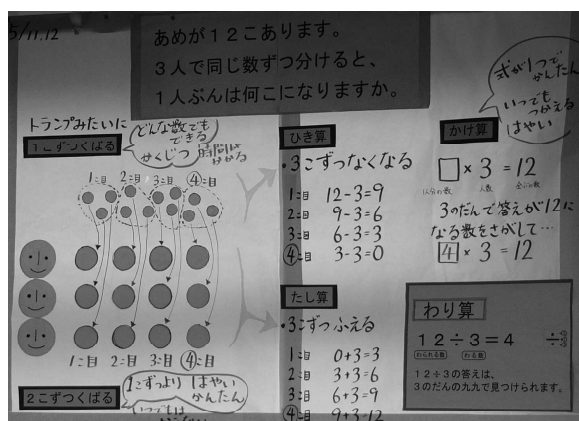 5/11.12
あめが１２こあります。
３人で同じ数ずつ分けると、
１人ぶんは何こになりますか。
トランプみたいに
１こずつくばる
どんな数でも
できる
かくじつ
時間は
かかる
1こ目 2こ目 3こ目 ④こ目
1こ目 2こ目 3こ目 ④こ目
２こずつくばる
1こずつより はやい
かんたん
いつでもは
ひき算
・3こずつなくなる
1こ目 12-3=9
2こ目 9-3=6
3こ目 6-3=3
④こ目 3-3=0
たし算
・3こずつふえる
1こ目 0+3=3
2こ目 3+3=6
3こ目 6+3=9
④こ目 9+3=12
式が1つで
かんたん
いつでも
つかえる
はやい
かけ算
□×3=12
1人分の数 人数 全ぶの数
3のだんで答えが12に
なる数をさがして…
4×3=12
わり算
１２÷３＝４
わられる数 わる数
÷
１２÷３の答えは、
３のだんの九九で見つけられます。